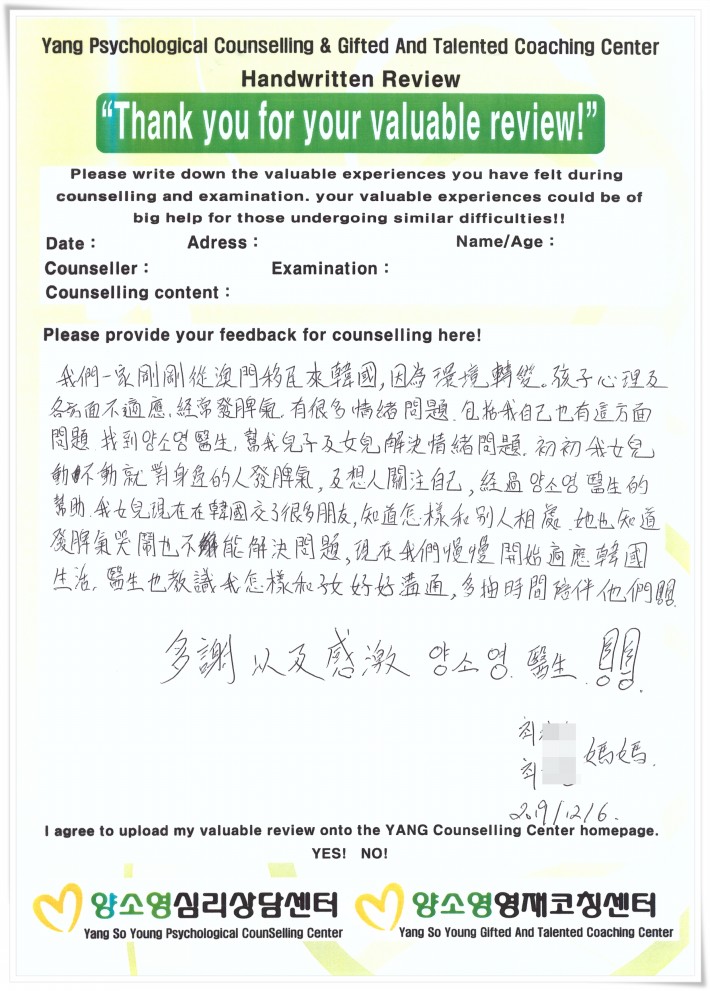 Yang Psychological Counselling & Gifted And Talented Coaching Center
Handwritten Review
“Thank you for your valuable review!”
Please write down the valuable experiences you have felt during
counselling and examination. your valuable experiences could be of
big help for those undergoing similar difficulties!!
Date : Adress : Name/Age :
Counseller : Examination :
Counselling content :
Please provide your feedback for counselling here!
我們一家剛剛從澳門移民來韓國,因為環境轉變。孩子心理及
各方面不適應,經常發脾氣,有很多情緒問題.包括我自己也有這方面
問題.找到양소영醫生,幫我兒子及女兒解決情緒問題.初初我女兒
動不動就對身邊的人發脾氣,及想人關注自己,經過양소영醫生的
幫助.我女兒現在在韓國交了很多朋友,知道怎樣和別人相處.她也知道
發脾氣哭鬧也不能解決問題,現在我們慢慢開始適應韓國
生活.醫生也教識我怎樣和子女好好溝通,多抽時間陪伴他們!!!
多謝以及感激 양소영 醫生!!!
최
최 媽媽.
2019/12/6.
I agree to upload my valuable review onto the YANG Counselling Center homepage.
YES! NO!
양소영심리상담센터 양소영영재코칭센터
Yang So Young Psychological CounSelling Center Yang So Young Gifted And Talented Coaching Center